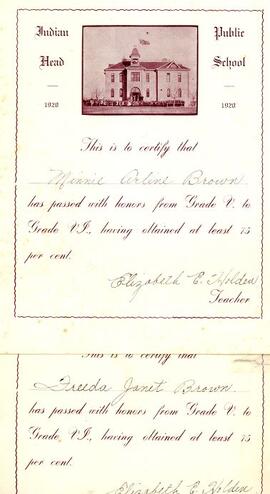 Indian Head
Public School
1920
1920
This is to certify that
Minnie Arline Brown
has passed with honors from Grade V. to
Grade VI., having obtained at least 75
per cent.
Elizabeth E. Holden
Teacher
This is to certify that
Freeda Janet Brown
has passed with honors from Grade V. to
Grade VI., having obtained at least 75
per cent.
Elizabeth E. Holden